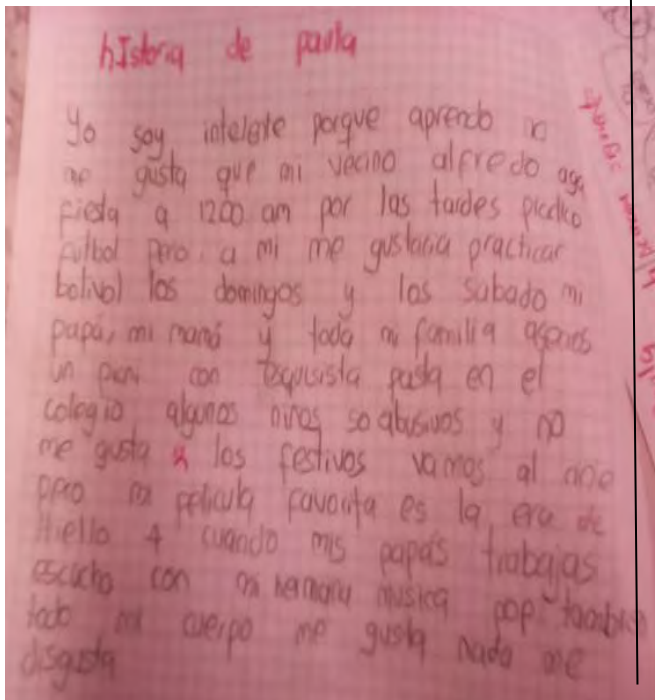 hIstoria de paula
Yo soy intelete porque aprendo
no gusta que mi vecino alfredo aga
fiesta a 1200 am por las tardes
futbol pero a mi me gustaria practicar
bolivol los domingos y los sabado mi
papá, mi mamá y toda mi familia
un con pasta en el
colegio algunos niños so abusivos y no
me gusta los festivos vamos al cine
pero mi pelicula favorita es la era de
Hiello 4 cuando mis papás trabajas
escucho con mi hermana musica pop tambien
todo mi cuerpo me gusta nada me
disgusta